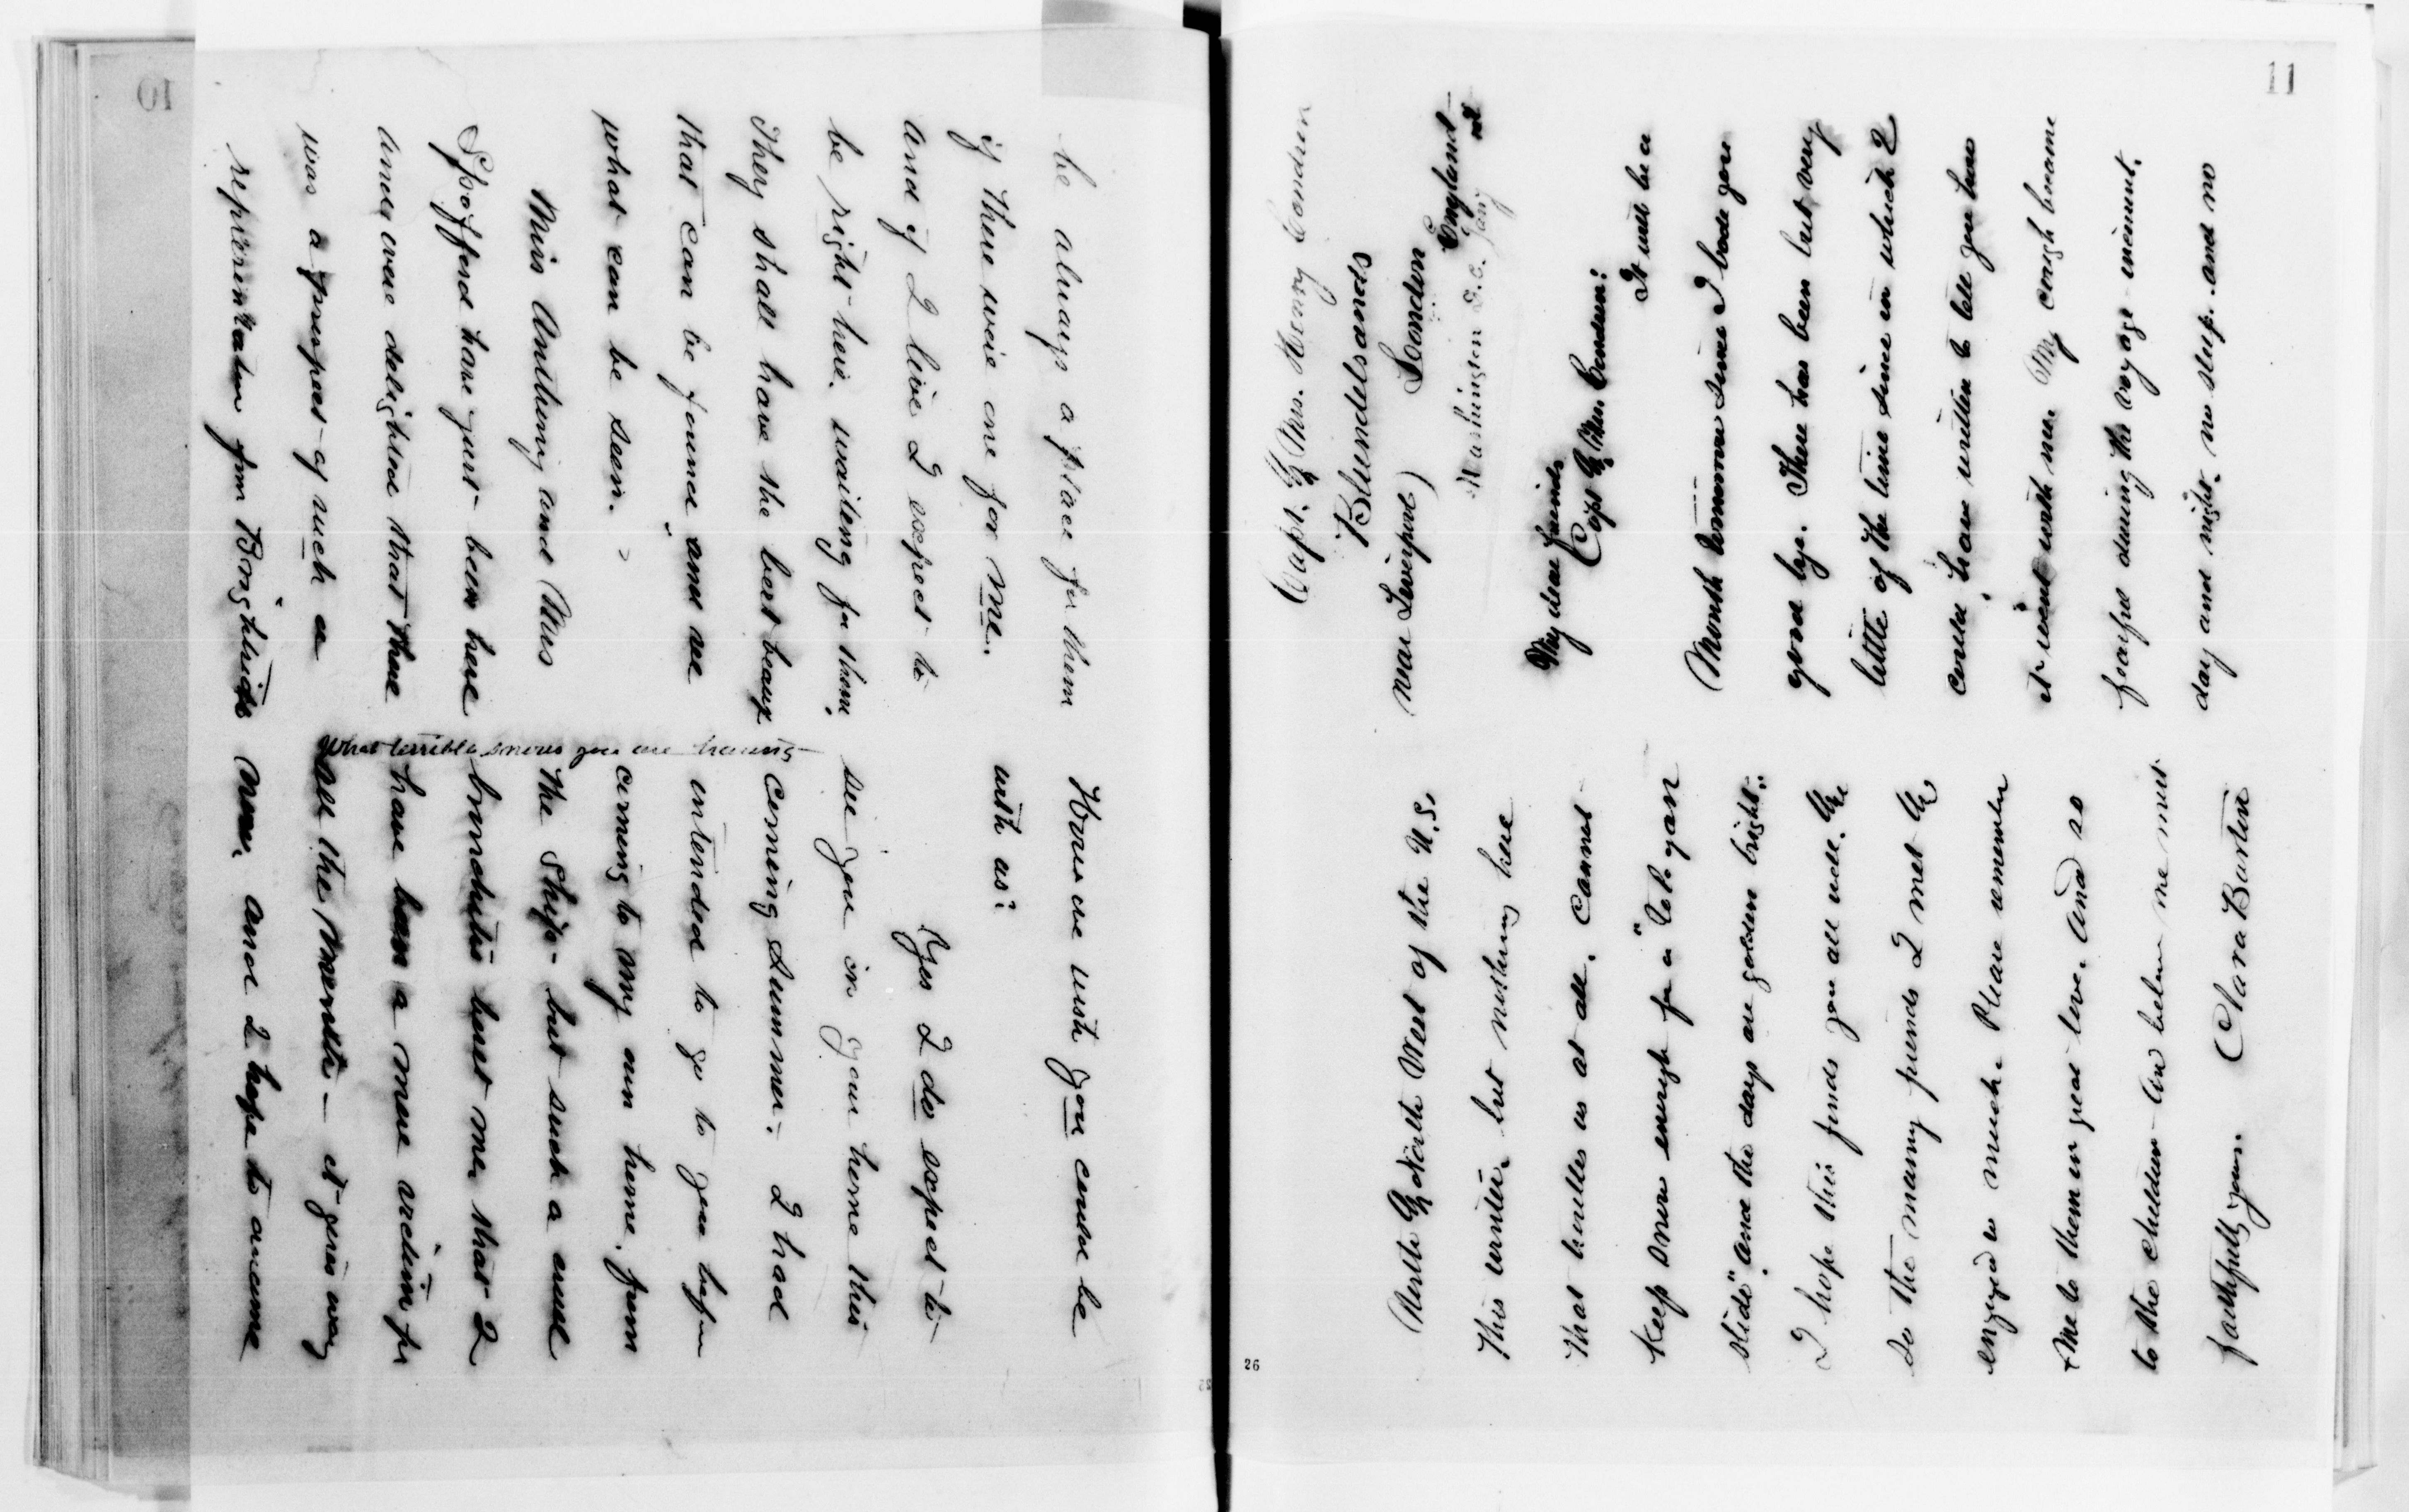 10
be always a place for them
if there were one for me.
And if I live I expect to
be right here waiting for them.
They shall have the best beaux
that can be found and see
what can be seen.
Miss Anthony and Mrs
Spofford have just been here
and were delighted that there
was a prospect of such a
representation from
How we wish you could be
with us:
Yes I do expect to
see you in your home this
coming Summer. I had
intended to go to you before
coming to my own home, from
the Ship - but such a cruel
bronchitis beset me that I
have been a mere victim for
all the month - it goes away
now. and I hope to
What terrible snows you are having
11
Capt. & Mrs. Henry Condon
Blundelsands
near Liverpool) London
England
Washington D.C. Jany
My dear friends
Capt & Mrs. Condon:
It will be a
Month tomorrow since I bade you
good bye. There has been but very
little of the time since in which I
could have written to tell you how
it went with me. My cough became
fearful during the voyage - incessant,
day and night, no sleep. and no
North & North West of the U.S.
this winter, but nothing here
that troubles us at all. Cannot
keep snow enough for a "Toboggan
slide" and the days are golden bright.
I hope this finds you all well. &
so the many friends I met &
enjoyed so much. Please remember
me to them in great love. And so
to the children - And believe me most
faithfully yours. Clara Barton
26